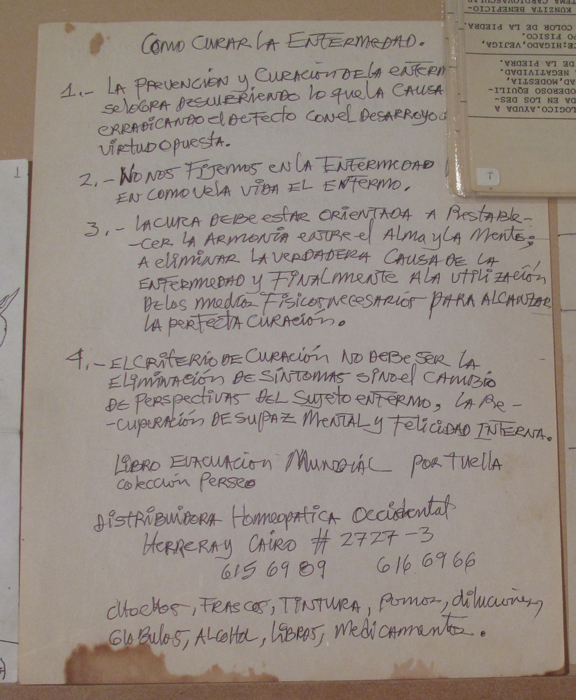 COMO CURAR LA ENFERMEDAD.
1.- LA PREVENCIÓN y CURACIÓN DE LA ENFERM
SE LOGRA DESCUBRIENDO LO QUE LA CAUSA
ERRADICANDO el DEFECTO CON EL DESARROYO
VIRTUD OPUESTA.
2.- NO NOS FIJEMOS EN LA ENFERMEDAD
EN COMO VE LA VIDA EL ENFERMO.
3.- LA CURA DEBE ESTAR ORIENTADA A RESTABLE-
-CER LA ARMONÍA ENTRE el ALMA y LA MENTE;
A ELIMINAR LA VERDADERA CAUSA DE LA
ENFERMEDAD y FINALMENTE A LA UTILIZACIÓN
DE LOS MEDIOS FÍSICOS NECESARIOS PARA ALCANZAR
LA PERFECTA CURACIÓN.
4.- EL CRITERIO DE CURACIÓN NO DEBE SER LA
ELIMINACIÓN DE SÍNTOMAS SINO el CAMBIO
DE PERSPECTIVAS DEL SUJETO ENFERMO, LA RE-
-CUPERACIÓN DE SU PAZ MENTAL y FELICIDAD INTERNA.
LIBRO EVACUACION MUNDIAL POR TUELLA
COLECCIÓN PERSEO
DISTRIBUIDORA HOMEOPATICA OCCIDENTAL
HERRERA y CAIRO # 2727-3
615 69 89 616 69 66
CHOCHOS, FRASCOS, TINTURA, POMOS, diluciones,
GLOBULOS, ALCOHOL, LIBROS, MEDICAMENTOS.
LOGICO. AYUDA A
DA EN LOS DES-
ODEROSO EQUILI-
AD, MODESTIA,
NEGATIVIDAD.
DE LA PIEDRA.
DE, HIGADO, VEJIGA,
PO FISICO.
COLOR DE LA PIEDRA.
KUNZITA BENEFICIO-
TEMA CARDIOVASCULAR